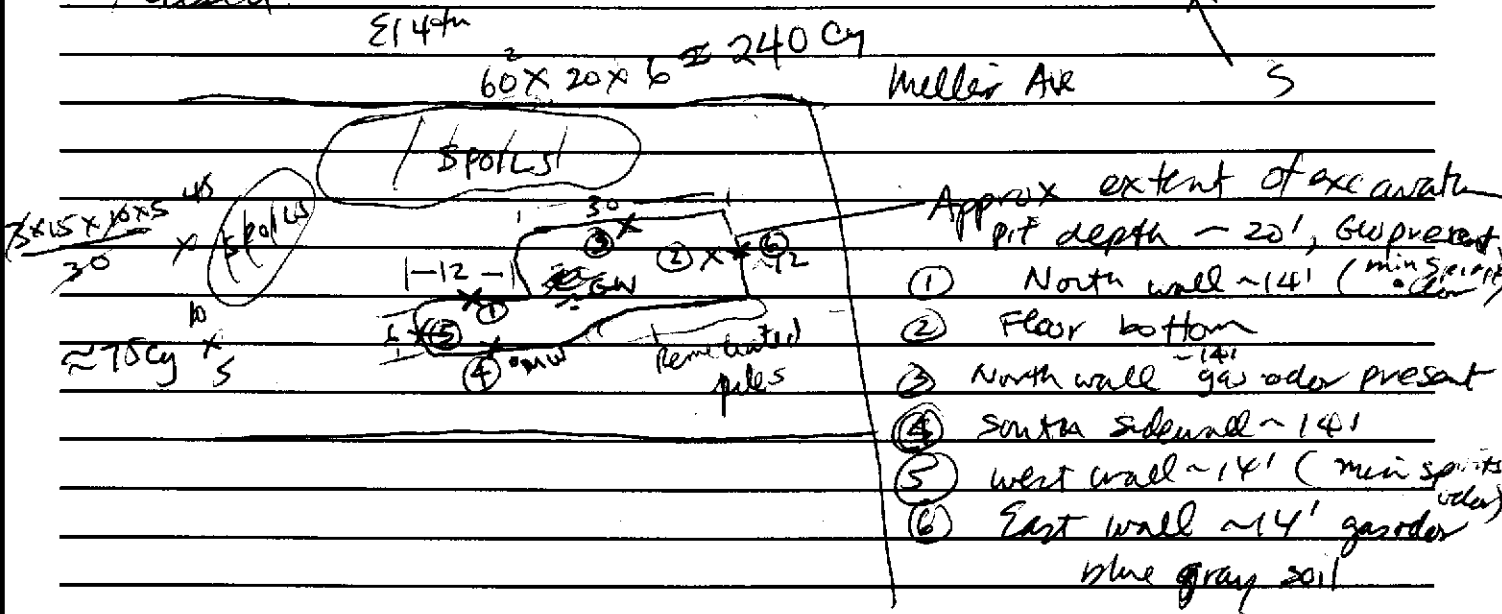 E14th
60 x 20 x 6 ≈ 240 Cy
2
Meller Ave
S
Spoils
Spoils
45
x
10
x
5
30
≈75Cy
30
③ X
② X X ⑥
12
|-12-|
GW
X ①
X ⑤
X ④ MW
Remediated
piles
Approx extent of excavatn
pit depth ~ 20', GW present,
① North wall ~14' (min spirits odor)
② Floor bottom
③ North wall ~14' gas odor present
④ South sidewall ~ 14'
⑤ west wall ~14' (min spirits odor)
⑥ East wall ~14' gas odor
blue gray soil